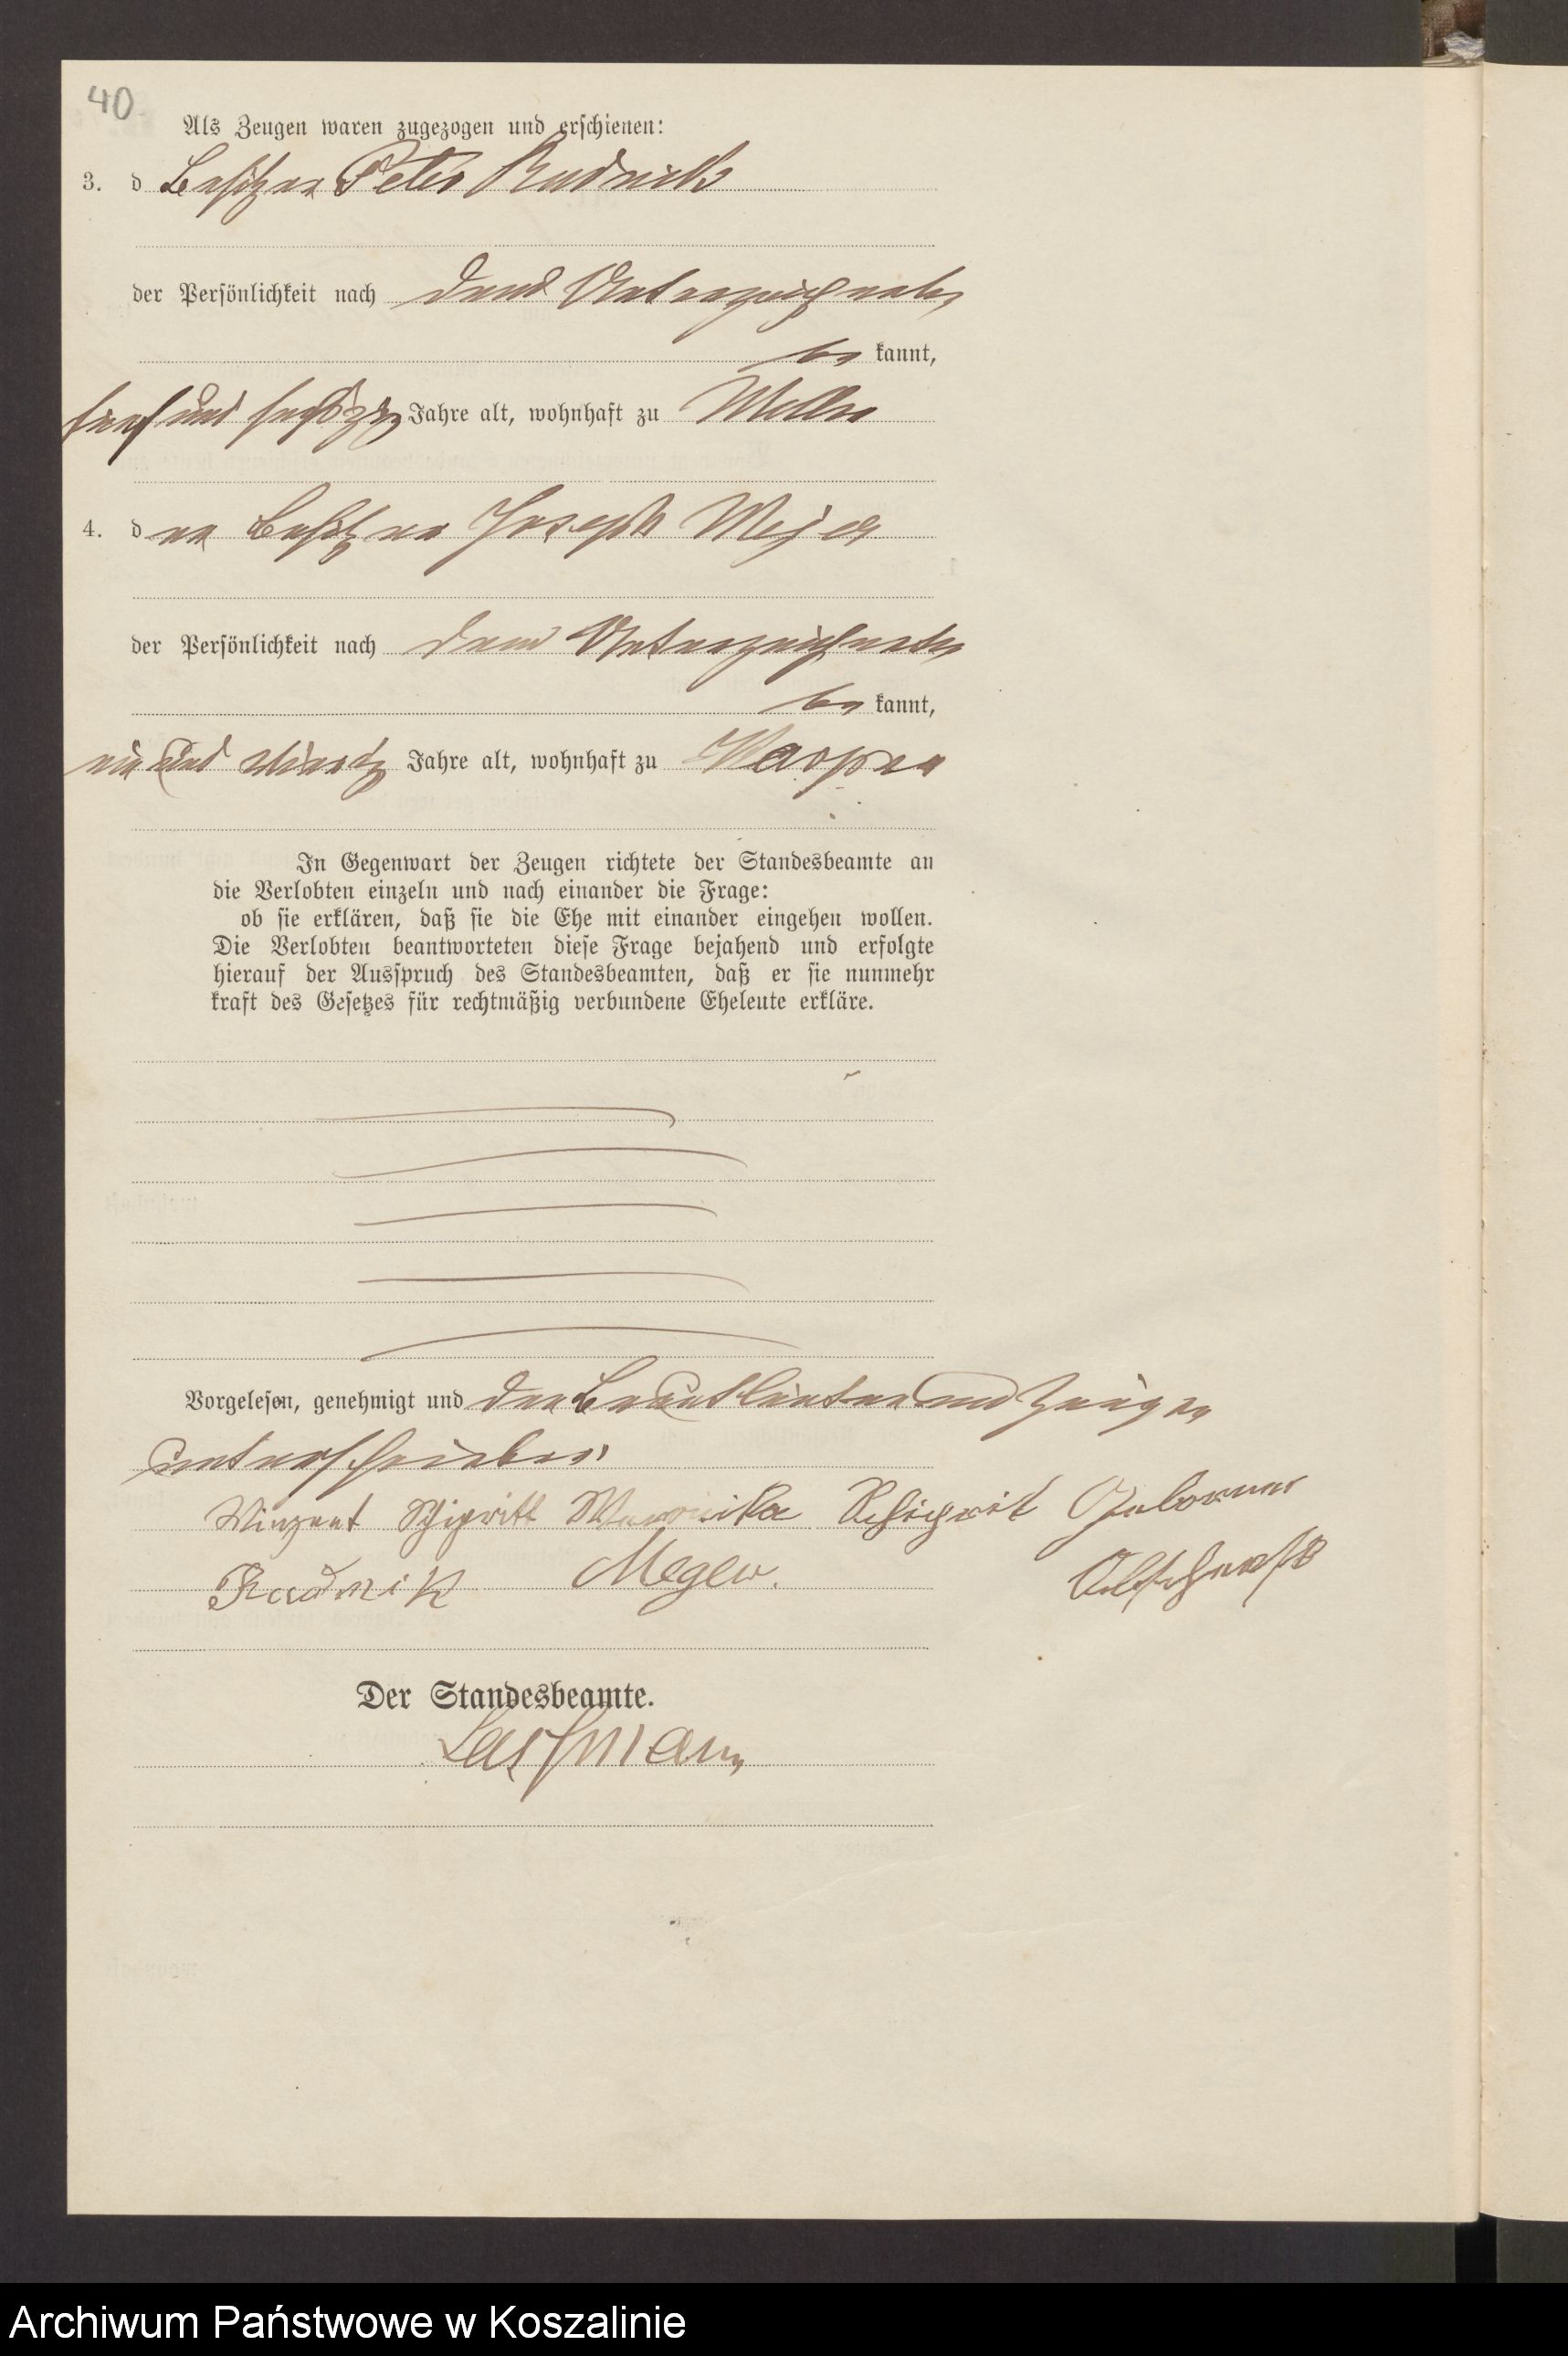 40
Als Zeugen waren zugezogen und erschienen:
3. d Besitzer Peter Rudnick
der Persönlichkeit nach dem Unterzeichneten
be kannt,
fünf und sechszig Jahre alt, wohnhaft zu
4. d er Besitzer Joseph
der Persönlichkeit nach dem Unterzeichneten
be kannt,
und vierzig Jahre alt, wohnhaft zu
In Gegenwart der Zeugen richtete der Standesbeamte an
die Verlobten einzeln und nach einander die Frage:
ob sie erklären, daß sie die Ehe mit einander eingehen wollen.
Die Verlobten beantworteten diese Frage bejahend und erfolgte
hierauf der Ausspruch des Standesbeamten, daß er sie nunmehr
kraft des Gesetzes für rechtmäßig verbundene Eheleute erkläre.
Vorgelesen, genehmigt und den Brautleuten und Zeugen
unterschrieben
Vinzent Veronika geborene
Rudnik
Der Standesbeamte.
Archiwum Państwowe w Koszalinie